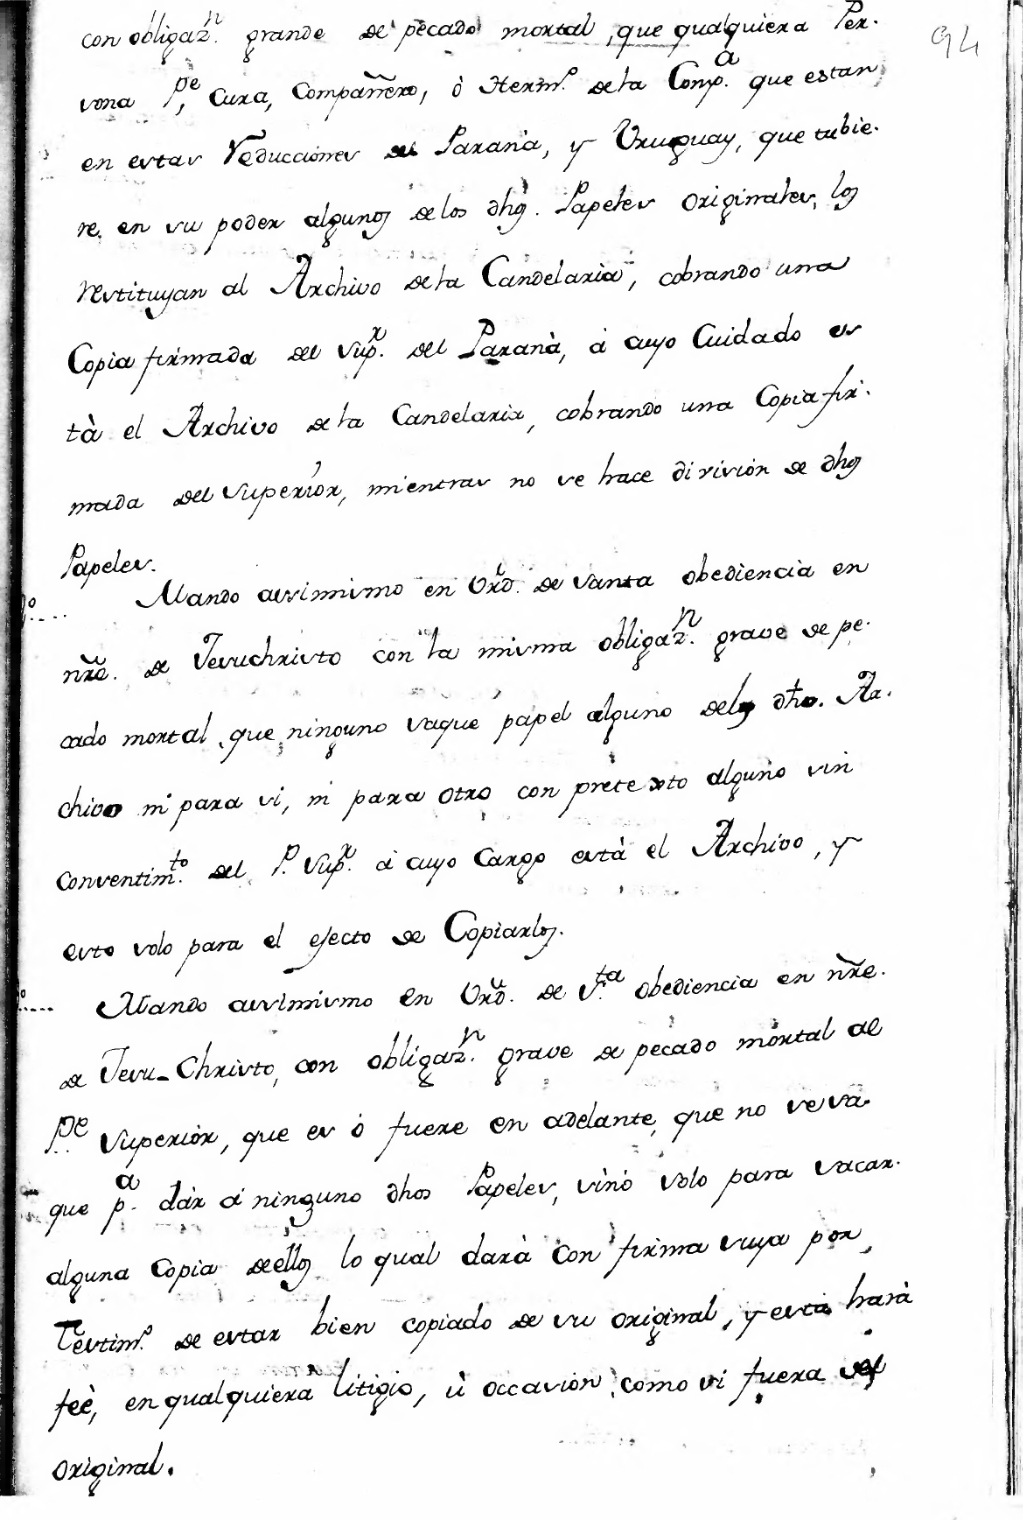 con obligaz.n grande de pecado mortal, que qualquiera Per-
94
sona P.e, Cura, Compañero, ò Herm.o de la Comp.a que estan
en estas Reducciones del Paranà, y Uruguay, que tubie-
re en su poder algunos de los dhos. Papeles originales, los
restituyan al Archivo de la Candelaria, cobrando una
Copia firmada del Sup.r del Paranà, à cuyo Cuidado es
tà el Archivo de la Candelaria, cobrando una Copia fir-
mada del Superior, mientras no se hace division de dhos
Papeles.
Mando assimismo en Urd. de santa obediencia en
nrẽ. de Jesuchristo con la misma obligaz.n grave de pe-
cado mortal, que ninguno saque papel alguno delos dho. Ar-
chivo ni para si, ni para otro con pretexto alguno sin
consentim.to del P. Sup.r à cuyo Cargo està el Archivo, y
esto solo para el efecto de Copiarlos.
Mando assimismo en Urd. de S.ta obediencia en nrẽ.
de Jesu-Christo, con obligaz.n grave de pecado mortal al
P.e Superior, que es ò fuere en adelante, que no se sa-
que p.a dàr à ninguno dhos Papeles, sinò solo para sacar-
alguna Copia de ellos lo qual darà con firma suya por
Testim.o de estar bien copiado de su original, y esta harà
feè, en qualquiera litigio, ù occasion, como si fuera del
original.